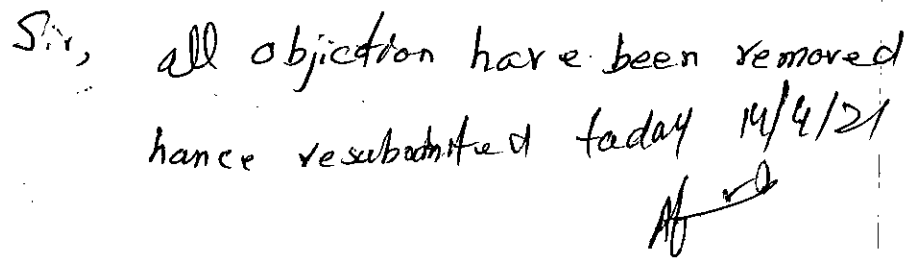 Sir,
all objiction have been removed
hance resubmitted taday 14/4/21